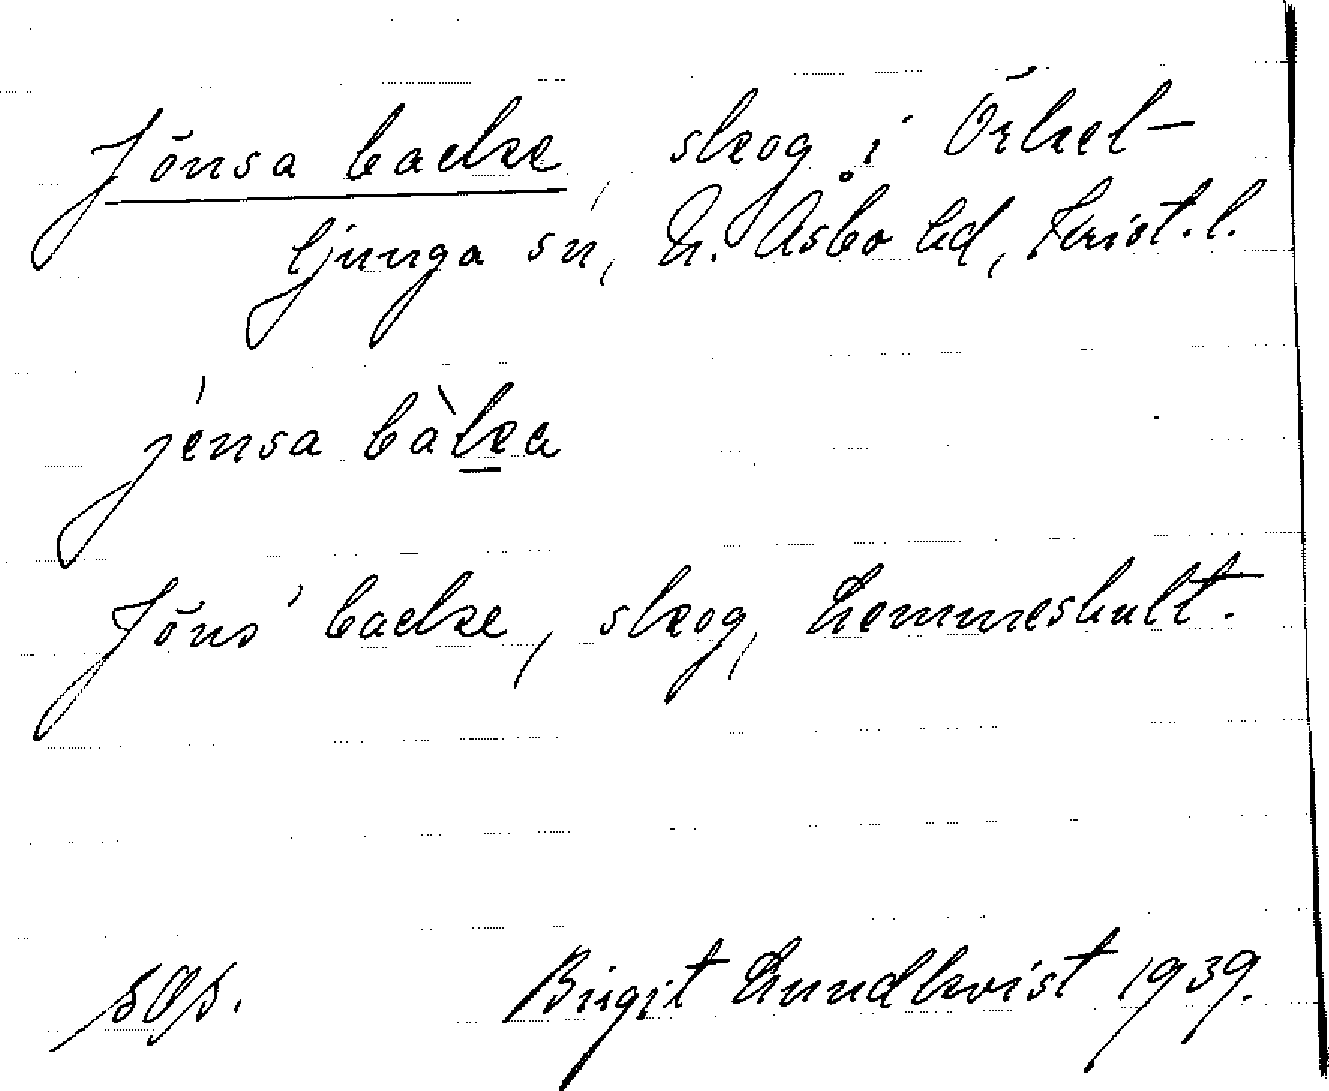 Jönsa backe, skog i Örkel-
ljunga sn, N. Åsbo hd, Krist. l.
jénsa bàka
Jöns' backe, skog, Lemmeshult.
sgs.
Birgit Lundkvist 1939.